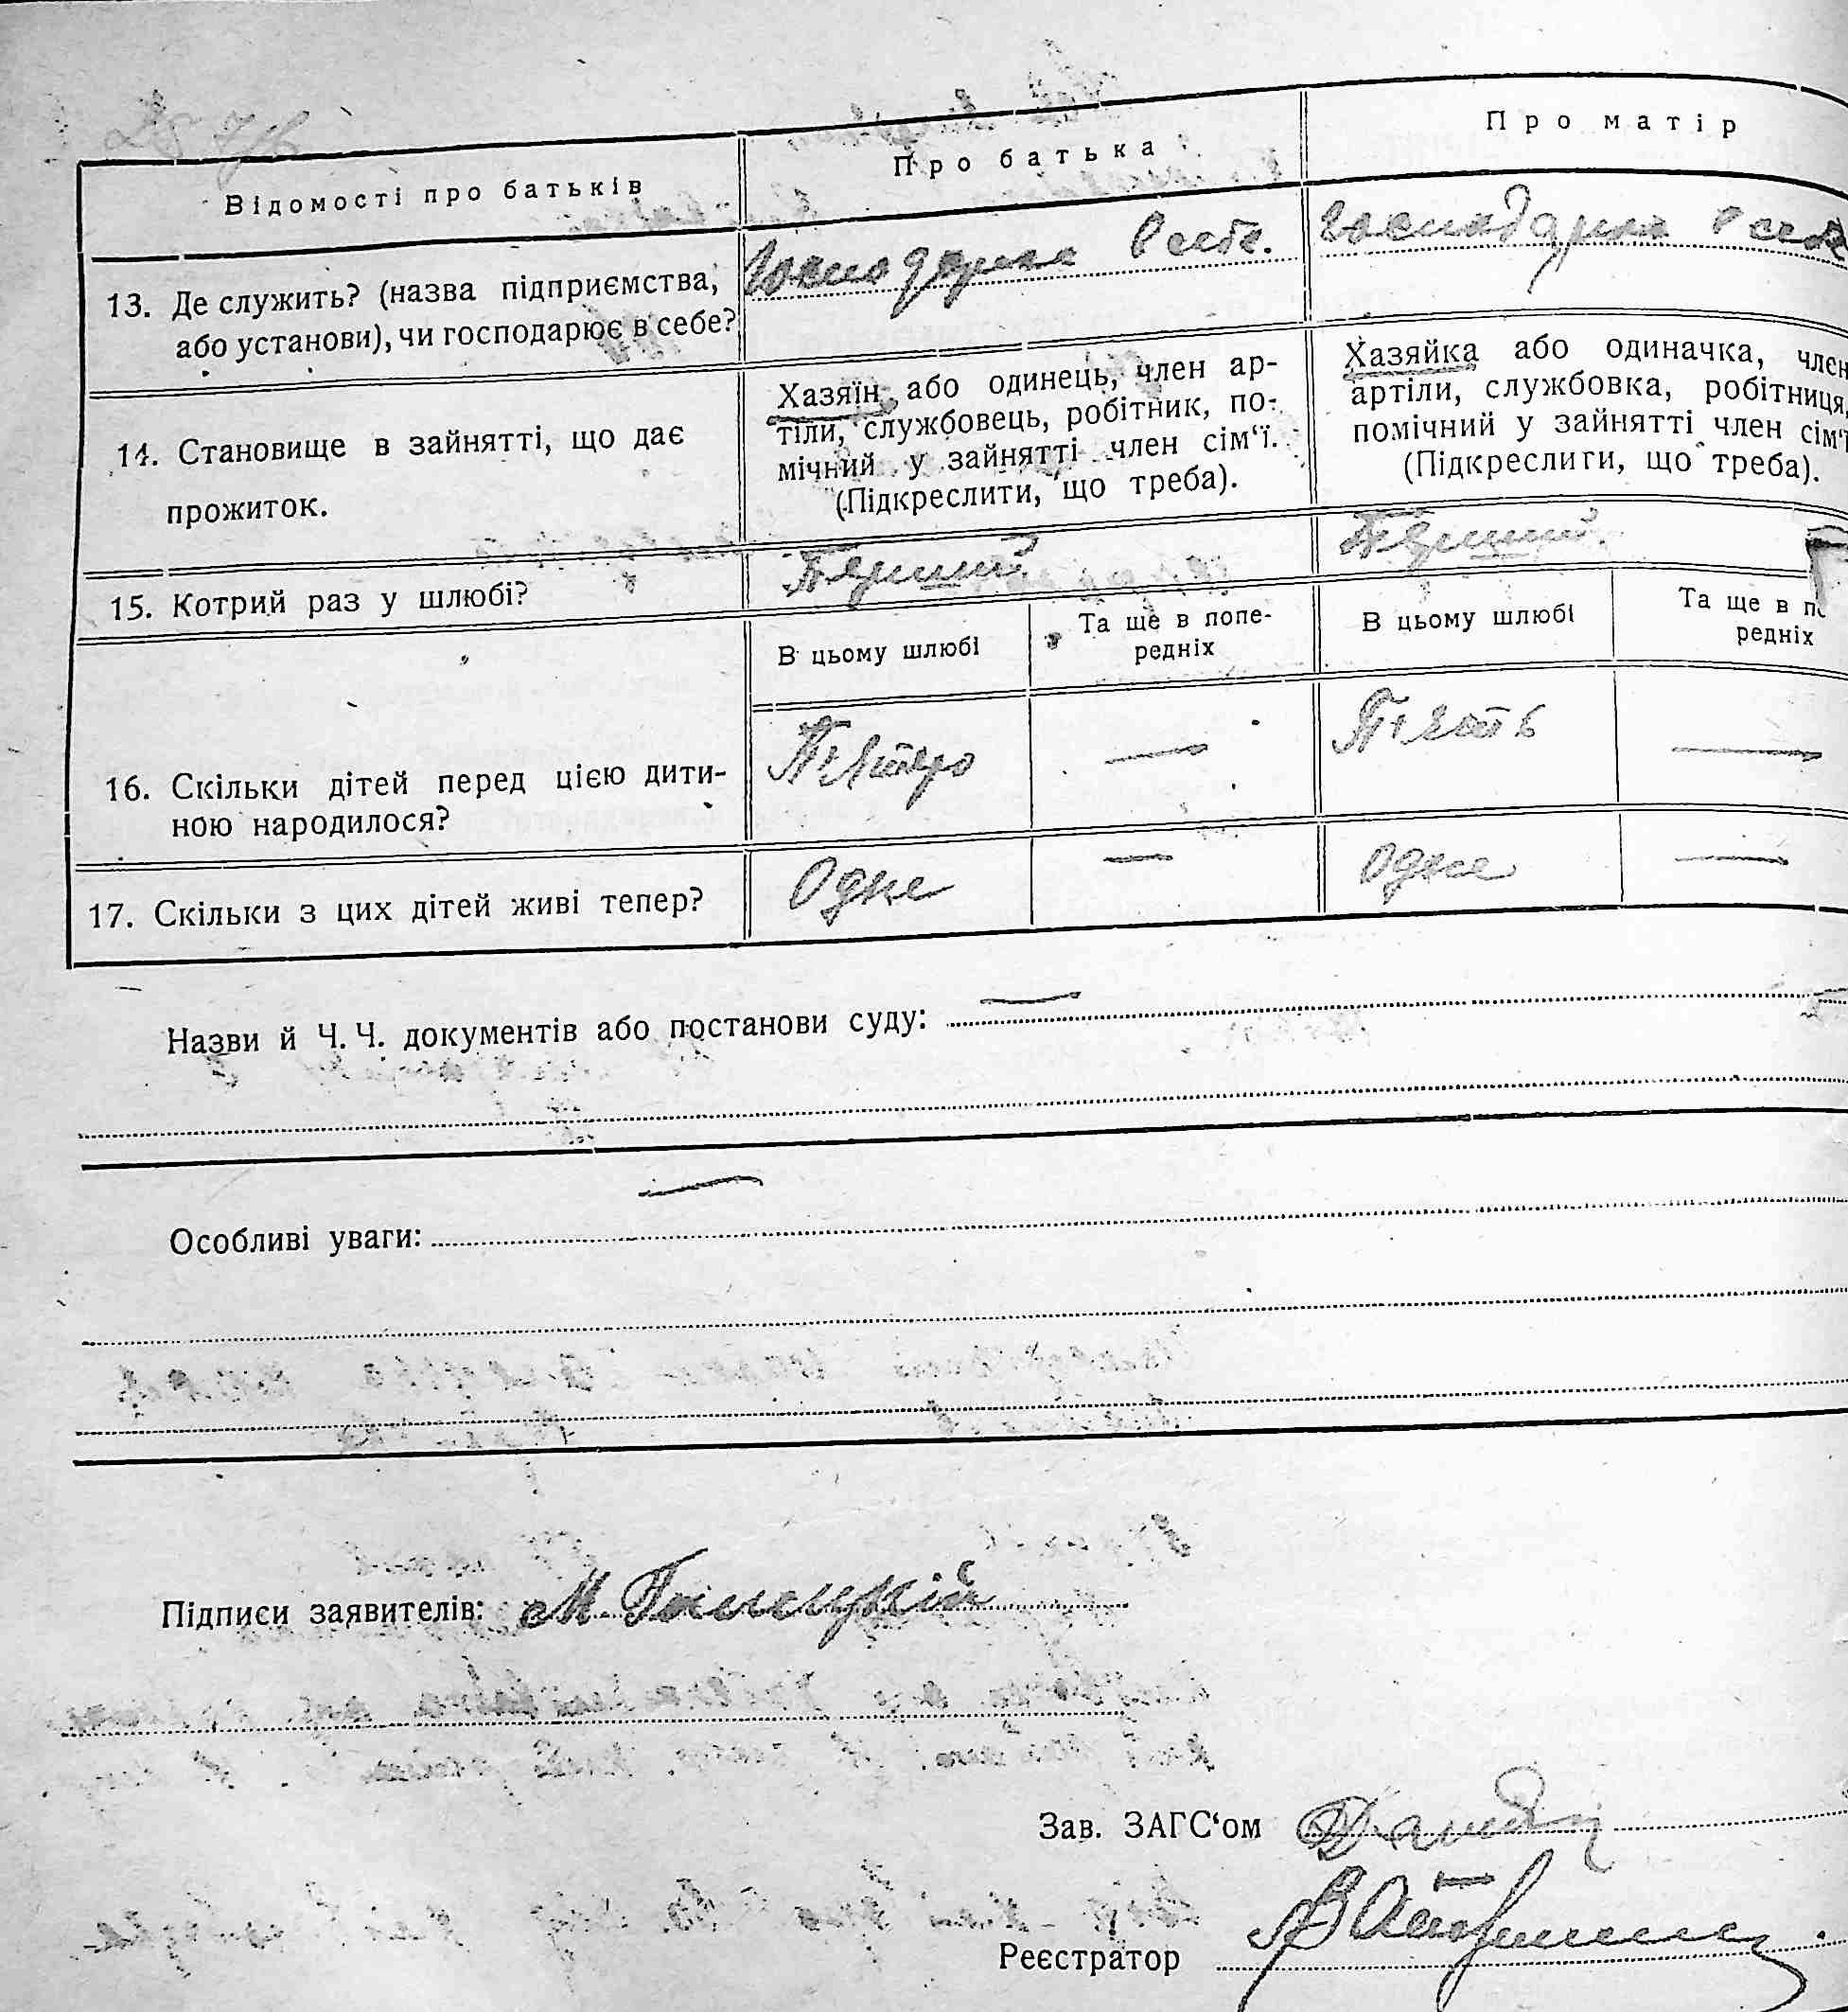 Відомості про батьків
Про батька
Про матір
13. Де служить? (назва підприємства,
або установи), чи господарює в себе?
Господарює в себе.
господарює в себе
14. Становище в зайнятті, що дає
прожиток.
Хазяїн або одинець, член ар-
тіли, службовець, робітник, по-
мічний у зайнятті член сім‘ї.
(Підкреслити, що треба).
Хазяйка або одиначка, член
артіли, службовка, робітниця,
помічний у зайнятті член сім‘ї
(Підкреслити, що треба).
15. Котрий раз у шлюбі?
Перший
Перший.
В цьому шлюбі
Та ще в попе-
редніх
В цьому шлюбі
Та ще в
редніх
16. Скільки дітей перед цією дити-
ною народилося?
П'ятеро
—
П'ять
—
17. Скільки з цих дітей живі тепер?
Одне
—
одне
—
Назви й Ч. Ч. документів або постанови суду: —
Особливі уваги: —
Підписи заявителів: М
Зав. ЗАГС‘ом
Реєстратор